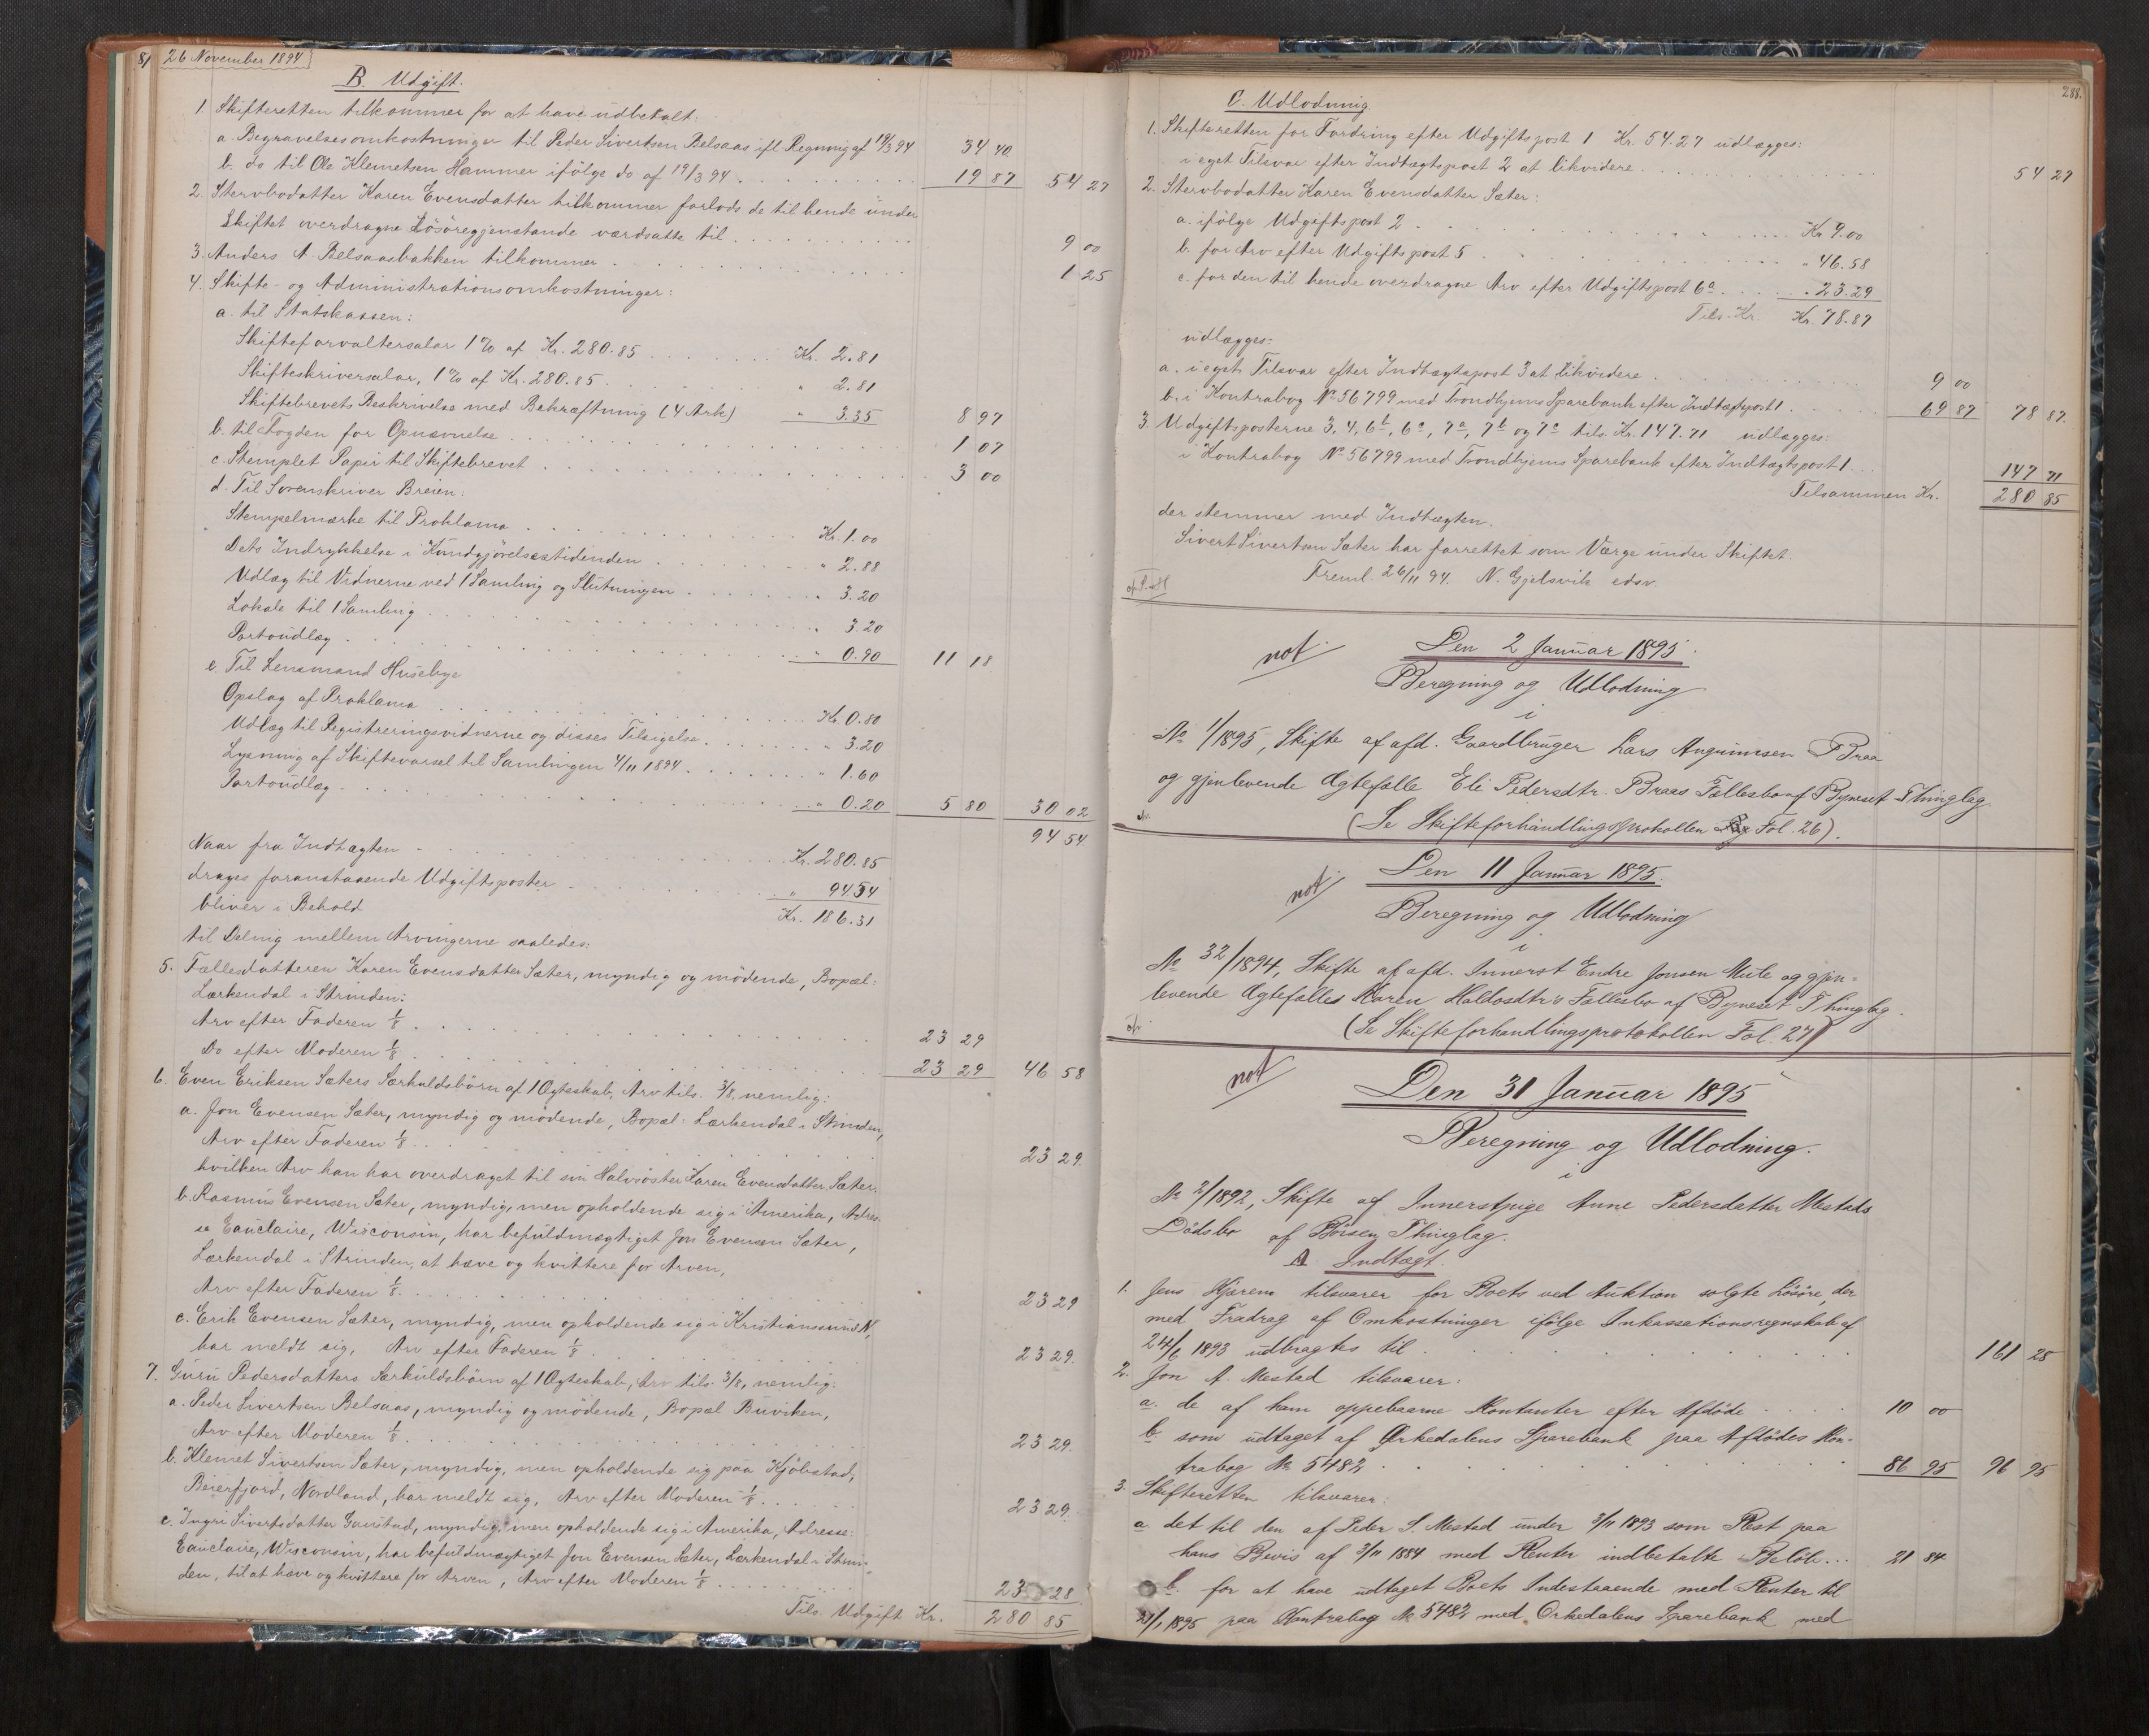 81 26 November 1894
B. Udgift.
1. Skifteretten tilkommer for at have udbetalt:
a. Begravelsesomkostninger til Peder Sivertsen Belsaas ifl. Regning af 19/3 94 34 40
b. do til Ole Klemetsen Hammer ifølge do af 19/3 94 . 19 87 54 27
2. Stervbodatter Karen Evensdatter tilkommer forlods de til hende under
Skiftet overdragne Løsøregjenstande værdsatte til . 9 00
3. Anders A. Belsaasbakken tilkommer . 1 25
4. Skifte- og Administrationsomkostninger:
a. til Statskassen:
Skifteforvaltersalar 1% af Kr. 280.85 . Kr. 2.81
Skifteskriversalar, 1% af Kr. 280.85 . " 2.81
Skiftebrevets Beskrivelse med Bekræftning (4 Ark) " 3.35 8 97
b. til Fogden for Opnævnelse . 1 07
c. Stemplet Papir til Skiftebrevet . 3 00
d. Til Sorenskriver Breien:
Stempelmærke til Proklama . Kr. 1.00
Dets Indrykkelse i Kundgjørelsestidenden . " 2.88
Udlæg til Vidnerne ved 1 Samling og Slutningen . " 3.20
Lokale til 1 Samling . " 3.20
Portoudlæg . " 0.90 11 18
e. Til Lensmand Huseby
Opslag af Proklama . Kr. 0.80
Udlæg til Registreringsvidnerne og disses Tilsigelse . " 3.20
Lysning af Skiftevarsel til Samlingen 4/11 1894 . " 1.60
Portoudlæg . " 0.20 5 80 30 02
94 54.
Naar fra Indtægten . Kr. 280.85
drages foranstaaende Udgiftsposter . " 94 54
bliver i Behold Kr. 186.31
til Deling mellem Arvingerne saaledes:
5. Fællesdatteren Karen Evensdatter Sæter, myndig og mødende, Bopæl:
Lærkendal i Strinden:
Arv efter Faderen 1/8 . 23 29
Do efter Moderen 1/8 . 23 29 46 58
6. Even Eriksen Sæters Særkuldsbørn af 1 Ægteskab, Arv tils. 3/8, nemlig:
a. Jon Evensen Sæter, myndig og mødende, Bopæl: Lærkendal i Strinden,
Arv efter Faderen 1/8 . 23 29.
hvilken Arv han har overdraget til sin Halvsøster Karen Evensdatter Sæter.
b. Rasmus Evensen Sæter, myndig, men opholdende sig i Amerika, Adres-
se Eauclaire, Wisconsin, har befuldmægtiget Jon Evensen Sæter,
Lærkendal i Strinden, at hæve og kvittere for Arven,
Arv efter Faderen 1/8. 23 29
c. Erik Evensen Sæter, myndig, men opholdende sig i Kristianssund N,
har meldt sig, Arv efter Faderen 1/8 . 23 29.
7. Guru Pedersdatters Særkuldsbørn af 1 Ægteskab, Arv tils. 3/8, nemlig:
a. Peder Sivertsen Belsaas, myndig og mødende, Bopæl Buviken,
Arv efter Moderen 1/8 . 23 29.
b. Klemet Sivertsen Sæter, myndig, men opholdende sig paa Kjøbstad,
Beierfjord, Nordland, har meldt sig, Arv efter Moderen 1/8 . 23 29.
c. Ingri Sivertsdatter Gaustad, myndig, men opholdende sig i Amerika, Adresse:
Eauclaire, Wisconsin, har befuldmægtiget Jon Evensen Sæter, Lærkendal i Strin-
den, til at hæve og kvittere for Arven, Arv efter Moderen 1/8 . 23 28
Tils. Udgift Kr. 280 85
288.
C. Udlodning
1. Skifteretten for Fordring efter Udgiftspost 1 Kr. 54.27 udlægges:
i eget Tilsvar efter Indtægtspost 2 at likvidere . 54 27
2. Stervbodatter Karen Evensdatter Sæter:
a. ifølge Udgiftspost 2 . Kr 9.00
b. for Arv efter Udgiftspost 5 . " 46.58
c. for den til hende overdragne Arv efter Udgiftspost 6a . " 23.29
Tils. Kr. Kr. 78.87
udlægges:
a. i eget Tilsvar efter Indtægtspost 3 at likvidere . 9 00
b. i Kontrabog No 56799 med Trondhjems Sparebank efter Indtægtspost 1 . 69 87 78 87.
3. Udgiftsposterne 3, 4, 6b, 6c, 7a, 7b og 7c tils. Kr. 147.71 udlægges:
i Kontrabog No 56799 med Trondhjems Sparebank efter Indtægtspost 1 . 147 71
Tilsammen Kr. 280 85
der stemmer med Indtægten.
Sivert Sivertsen Sæter har forrettet som Værge under Skiftet.
Freml. 26/11 94. N. Gjelsvik edsv.
not.
Den 2 Januar 1895.
Beregning og Udlodning
i
No 1/1895, Skifte af afd. Gaardbruger Lars Angunnsen Braa
og gjenlevende Ægtefælle Eli Pedersdtr. Braas Fællesbo af Bynesset Thinglag.
(Se Skifteforhandlingsprokollen Fol. 26).
not.
Den 11 Januar 1895.
Beregning og Udlodning
i
No 32/1894, Skifte af afd. Innerst Endre Jonsen Mule og gjen-
levende Ægtefælles Karen Haldosdtr's Fællesbo af Byneset Thinglag.
(Se Skifteforhandlingsprotokollen Fol. 27)
not
Den 31 Januar 1895
Beregning og Udlodning.
i
No 2/1892, Skifte af Innerstpige Anne Pedersdatter Mestads
Dødsbo af Børsen Thinglag.
A. Indtægt.
1. Jens Hjærem tilsvarer for Boets ved Auktion solgte Løsøre, der
med Fradrag af Omkostninger ifølge Inkassationsregnskab af
24/6 1893 udbragtes til . 161 28
2. Jon A. Mestad tilsvarer:
a. de af ham oppebaarne Kontanter efter Afdøde . 10 00
b. som udtaget af Ørkedalens Sparebank paa Afdødes Kon-
trabog No 5482 . 86 95 96 95
3. Skifteretten tilsvarer:
a. det til den af Peder S. Mestad under 3/11 1893 som Rest paa
hans Bevis af 3/11 1884 med Renter indbetalte Beløb . . . 21 84
b. for at have udtaget Boets Indestaaende med Renter til
31/1 1895 paa Kontrabog No 5482 med Orkedalens Sparebank med